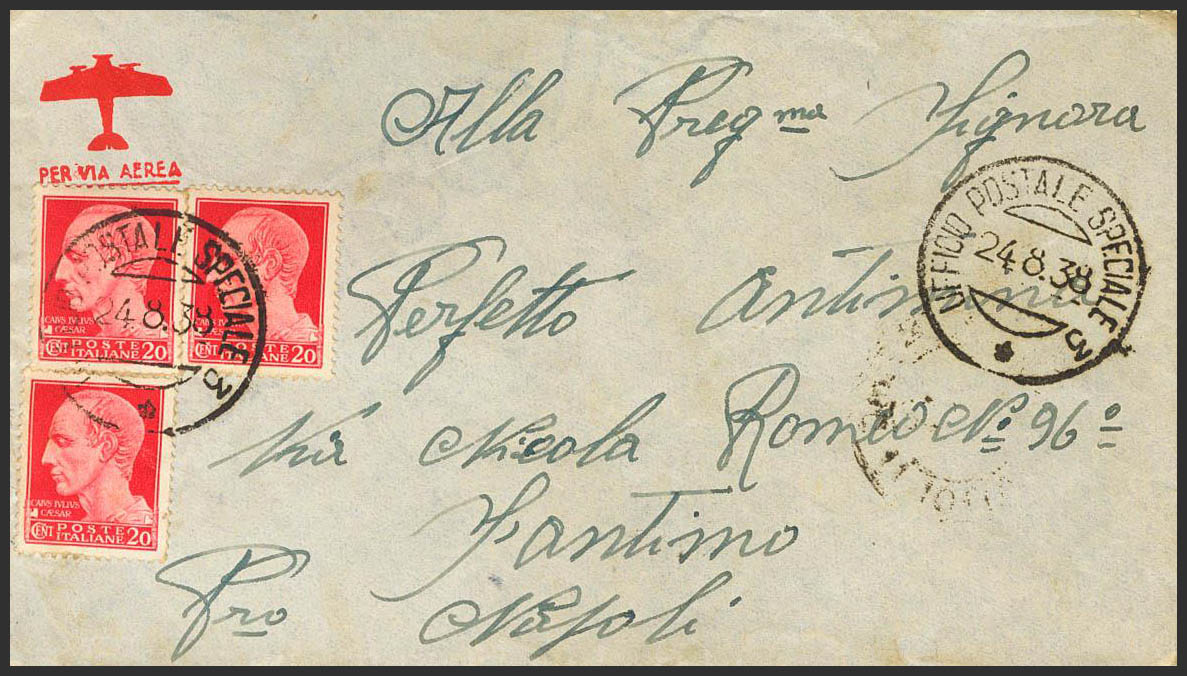 PER VIA AEREA
Alla Preg.ma Signora
Perfetto Antimina
Via Nicola Romeo No 96o
Santimo
Pro Napoli
UFFICIO POSTALE SPECIALE 3
24.8.38
POSTALE SPECIALE 3
24.8.38
CAIVS IVLIVS
CÆSAR
CENT POSTE ITALIANE 20
CAIVS IVLIVS
CÆSAR
CENT POSTE ITALIANE 20
CAIVS IVLIVS
CÆSAR
CENT POSTE ITALIANE 20